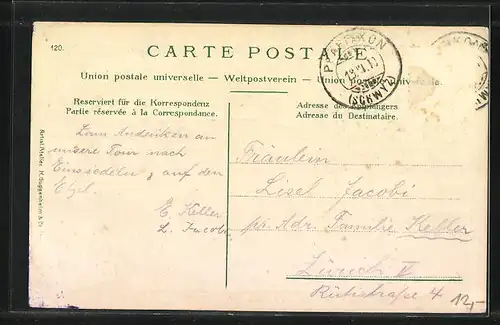 120.
CARTE POSTALE
PFÄFFIKON
(SCHWYZ)
Union postale universelle – Weltpostverein – Union postale universale
Reserviert für die Korrespondenz
Partie réservée à la Correspondance.
Adresse des Empfängers
Adresse du Destinataire.
Zum Andenken an
unsere Tour nach
Einsiedeln, auf den
Etzel.
E. Keller
L. Jacobi
Fräulein
Lisel Jacobi
pr. Adr. Familie Keller
Zürich V
Rütistrasse 4
12,-
H. Guggenheim & Co.